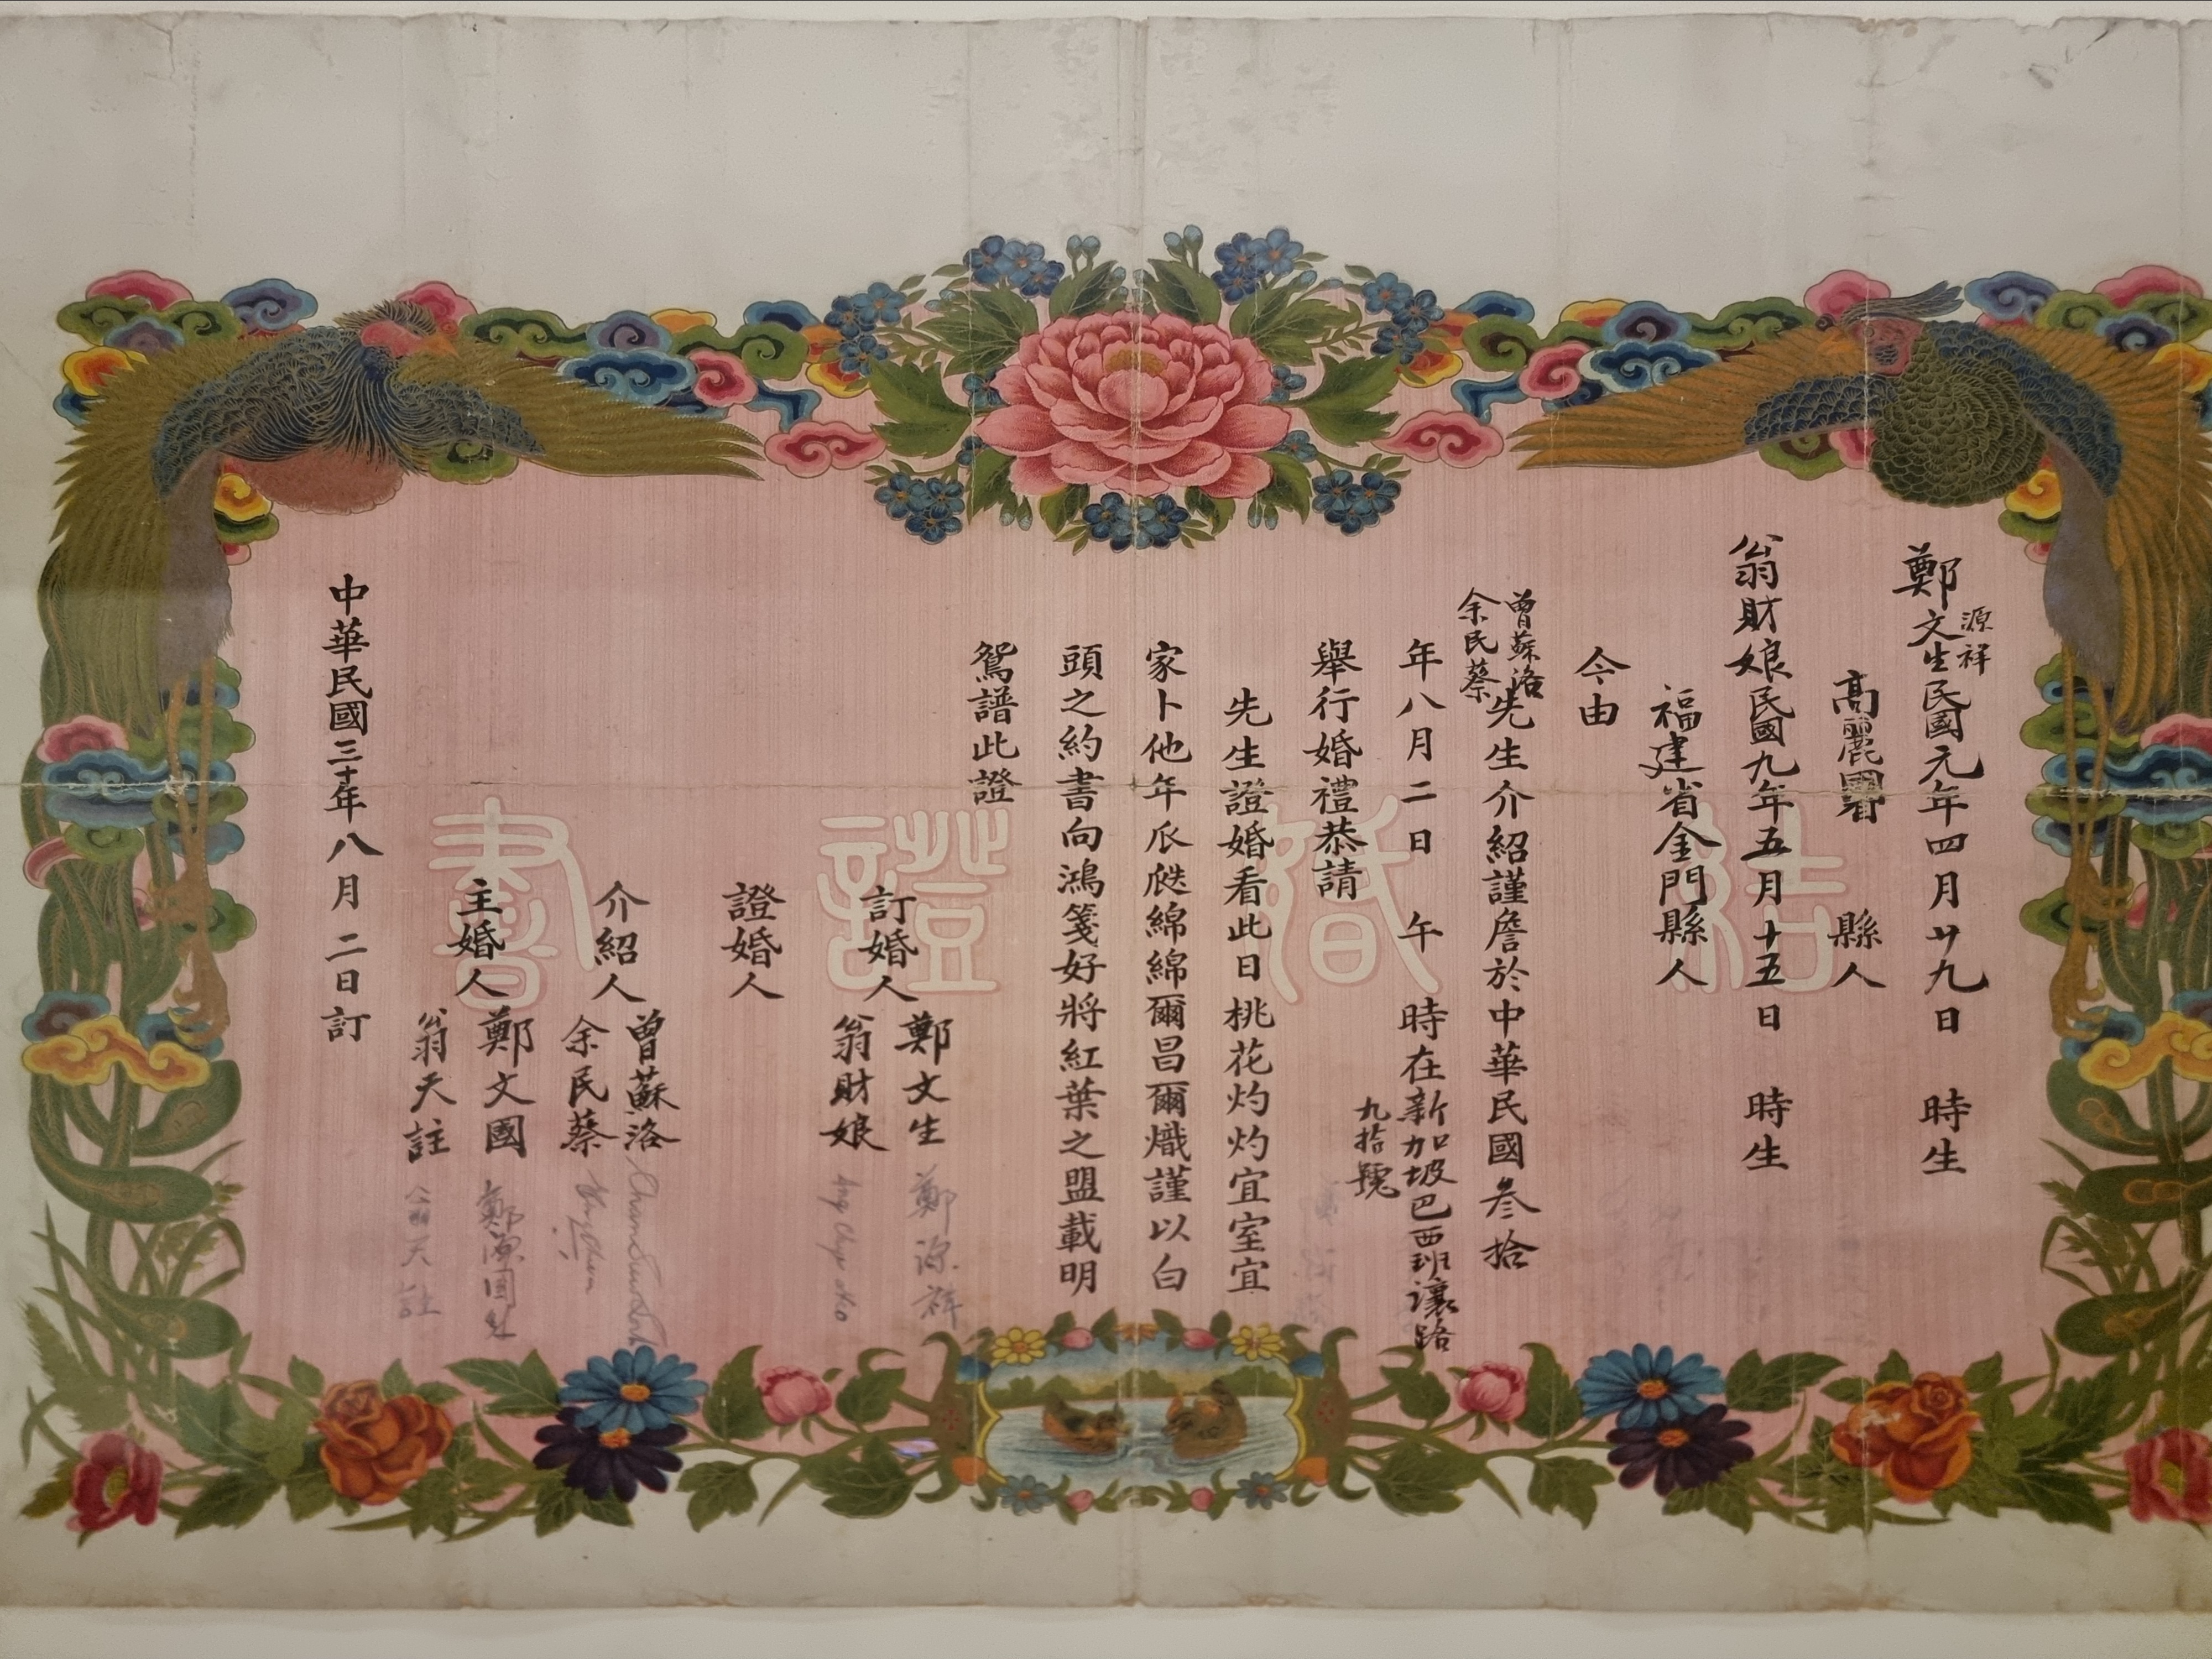 結婚證書
鄭源祥文生民國元年四月廿九日 時生
高麗國 縣人
翁財娘民國九年五月十五日 時生
福建省金門縣人
今由
曾蘇洛
余民蔡
先生介紹謹詹於中華民國叁拾
年八月二日 午 時在新加坡巴西班讓路
九拾號
舉行婚禮恭請
先生證婚看此日桃花灼灼宜室宜
家卜他年瓜瓞綿綿爾昌爾熾謹以白
頭之約書向鴻箋好將紅葉之盟載明
鴛譜此證
訂婚人 鄭文生 鄭源祥
翁財娘
證婚人
介紹人 曾蘇洛
余民蔡
主婚人 鄭文國
翁天註 翁天註
中華民國三十年八月二日訂